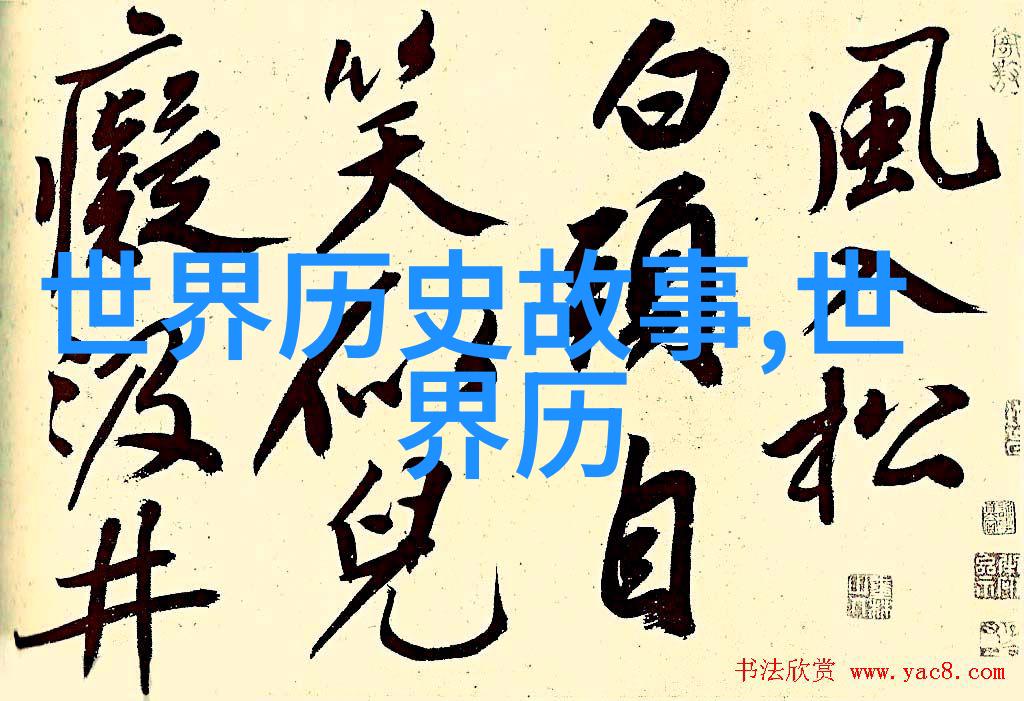 風入松
白頭自
笑似兒
癡汲井
世界历史故事,世
界历
书法欣赏 www.yac8.com